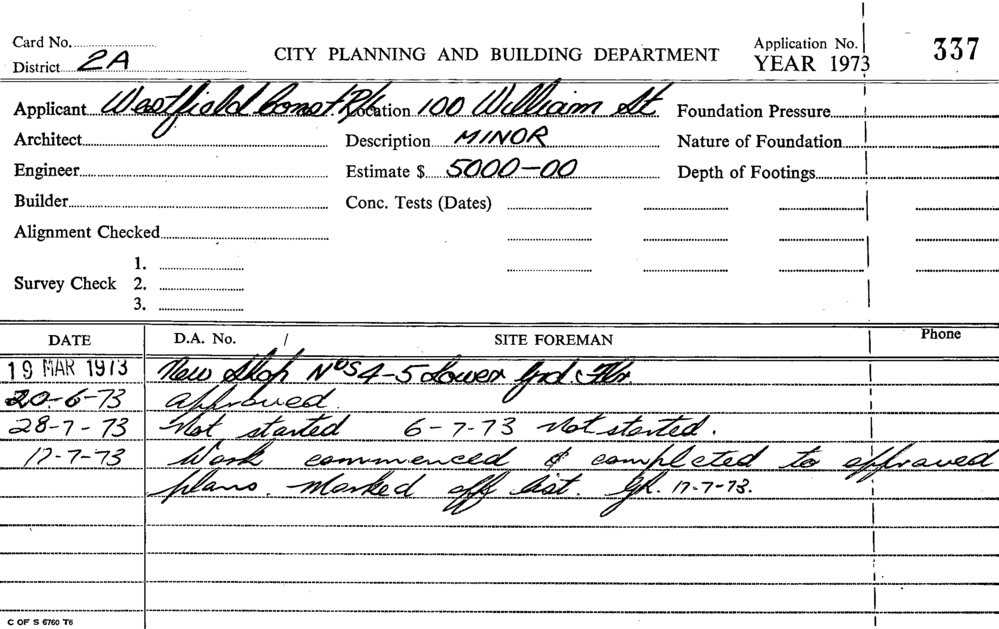 Card No.
CITY PLANNING AND BUILDING DEPARTMENT
Application No. 337
District 2A
YEAR 1973
Applicant Westfield Const. P/L Location 100 William St Foundation Pressure
Architect Description MINOR Nature of Foundation
Engineer Estimate $ 5000-00 Depth of Footings
Builder Conc. Tests (Dates)
Alignment Checked
1.
Survey Check 2.
3.
DATE D.A. No. / SITE FOREMAN Phone
19 MAR 1973 New Shop Nos 4-5 Lower Grd. Flr.
20-6-73 approved.
28-7-73 Not started 6-7-73 Not started.
17-7-73 Work commenced & completed to approved
plans. Marked off list. 17-7-73.
C OF S 6760 T6